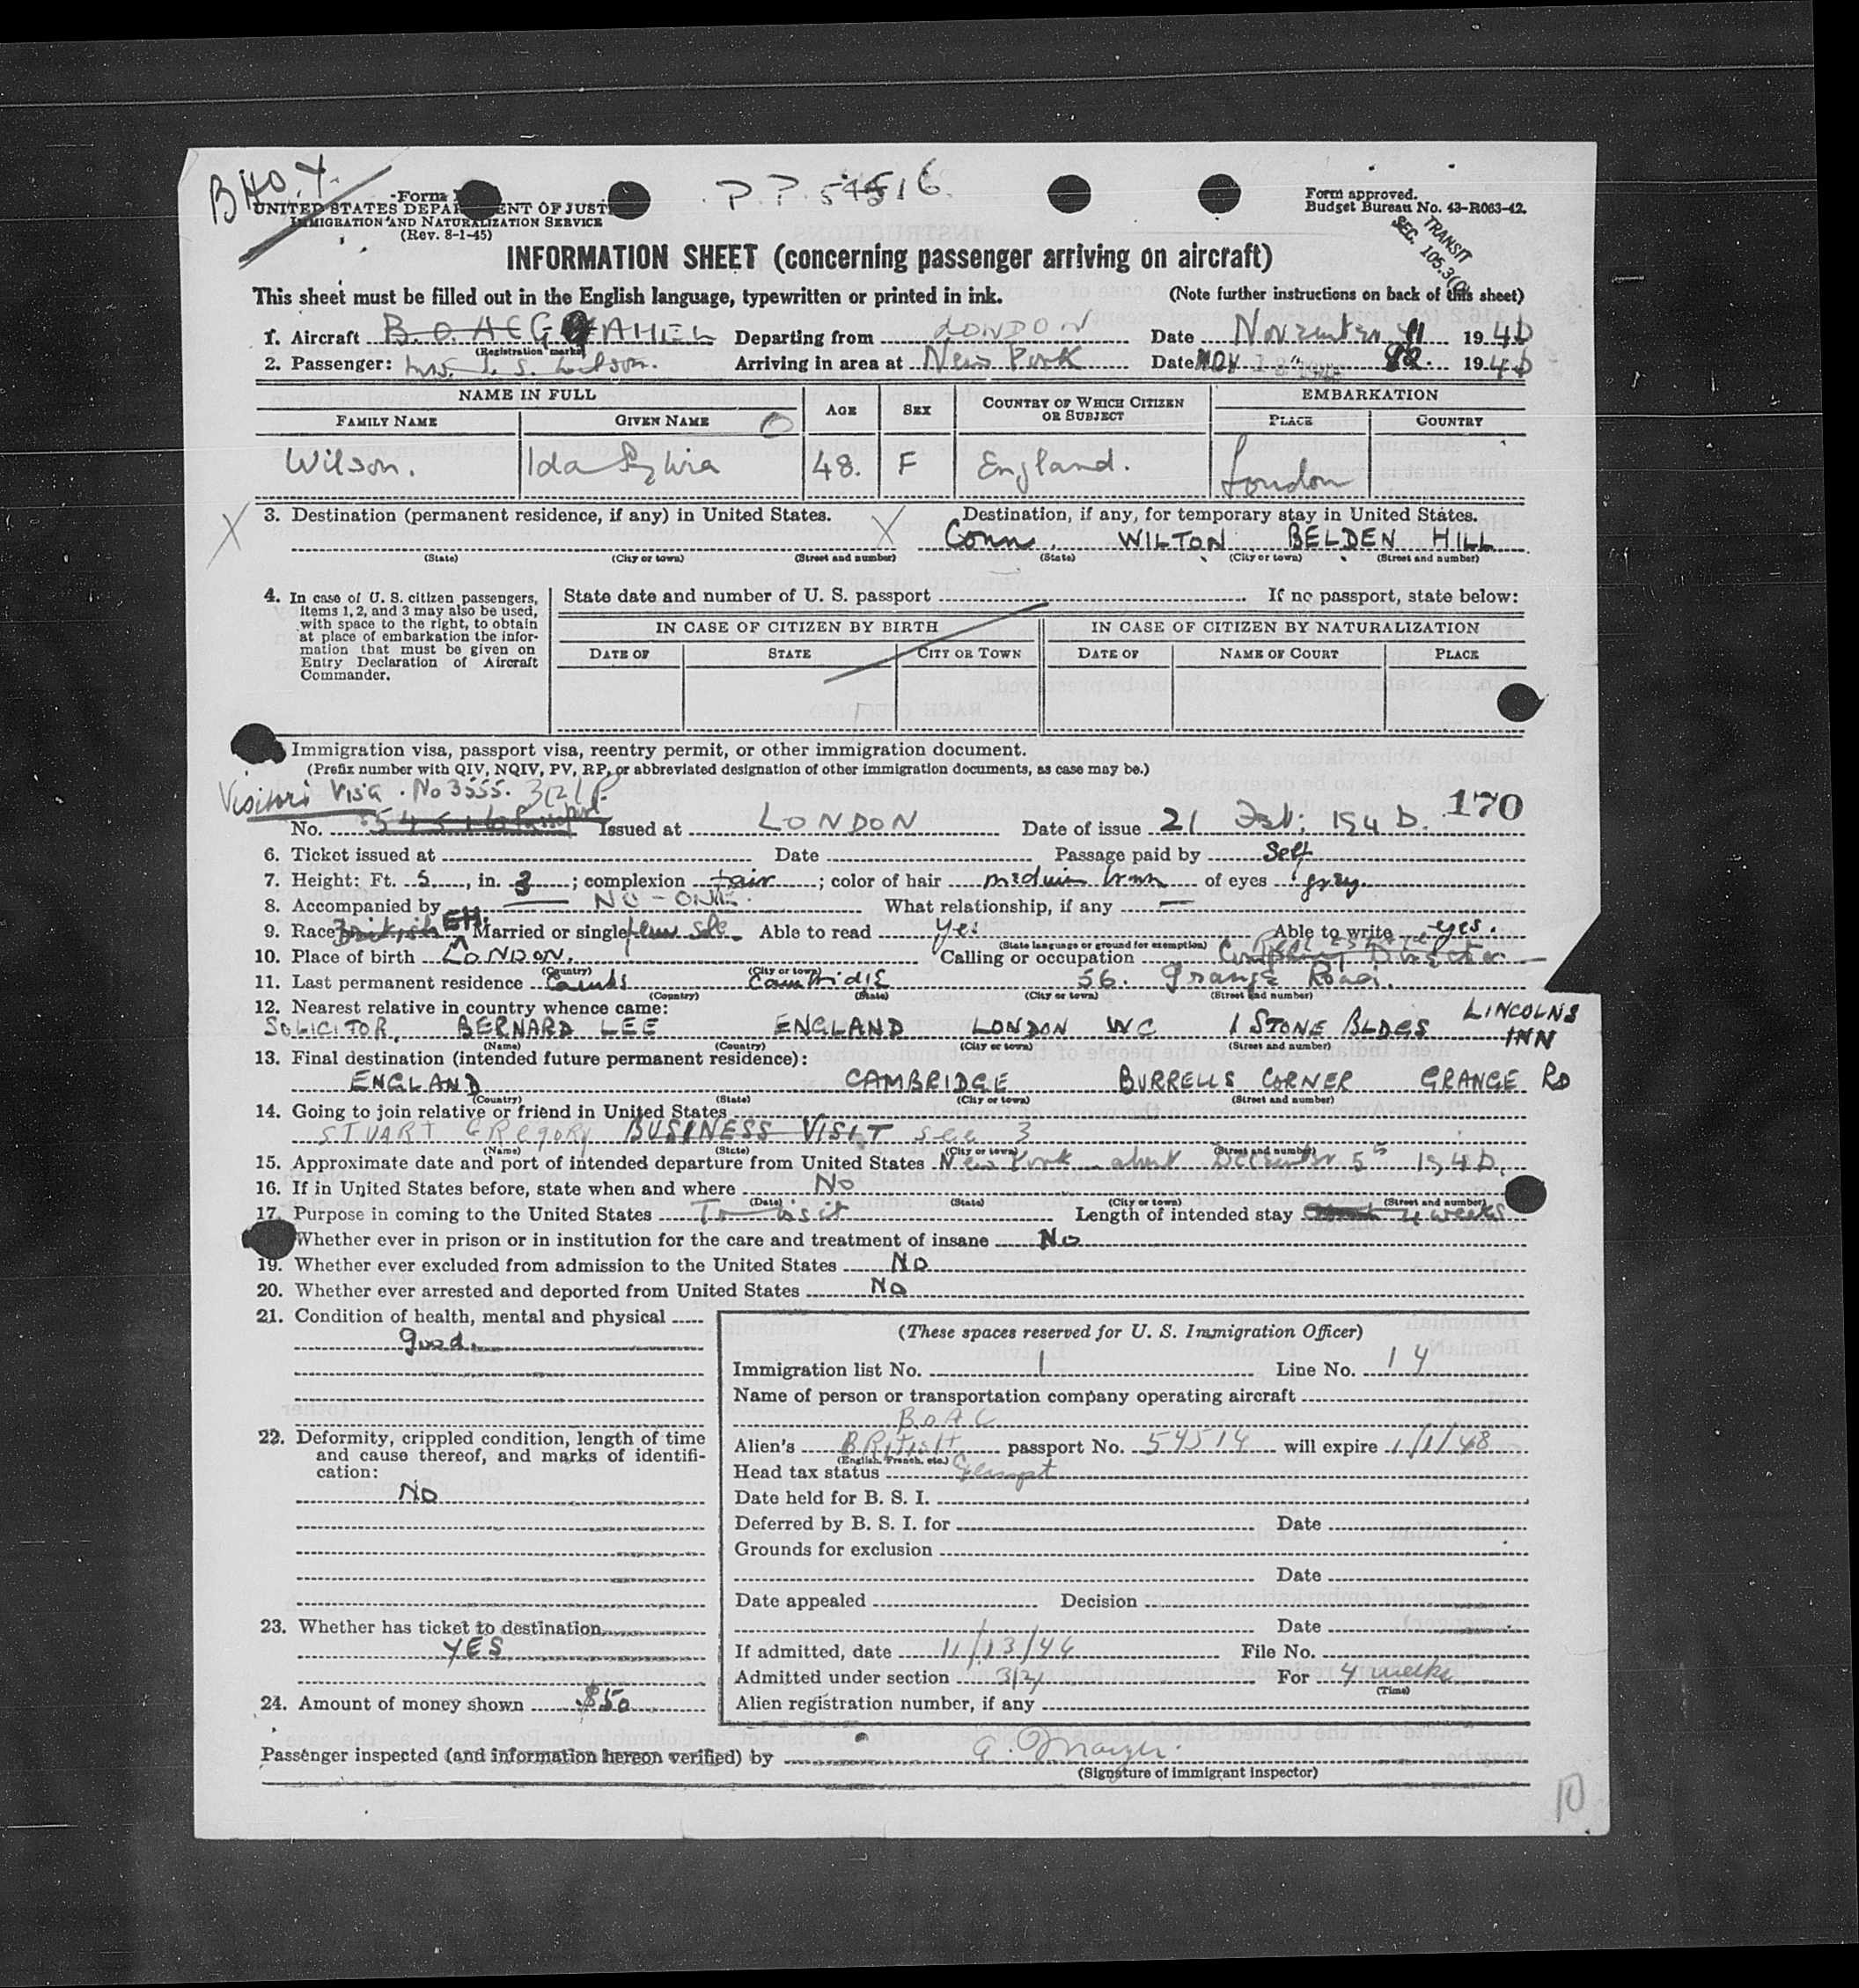 BHO.Y.
P.P. 54516.
Form
UNITED STATES DEPARTMENT OF JUST
IMMIGRATION AND NATURALIZATION SERVICE
(Rev. 8-1-45)
Form approved.
Budget Bureau No. 43-R063-42.
TRANSIT
SEC. 105.3
INFORMATION SHEET (concerning passenger arriving on aircraft)
This sheet must be filled out in the English language, typewritten or printed in ink. (Note further instructions on back of this sheet)
1. Aircraft B.O.A.C G AHEL Departing from LONDON Date November 11 1946
(Registration marks)
2. Passenger: Mrs. I. S. Wilson. Arriving in area at New York Date NOV 12. 1946
NAME IN FULL AGE SEX COUNTRY OF WHICH CITIZEN OR SUBJECT EMBARKATION
FAMILY NAME GIVEN NAME PLACE COUNTRY
Wilson. Ida Sylvia 48. F England. London
3. Destination (permanent residence, if any) in United States. Destination, if any, for temporary stay in United States.
X X Conn. WILTON BELDEN HILL
(State) (City or town) (Street and number) (State) (City or town) (Street and number)
4. In case of U. S. citizen passengers, items 1, 2, and 3 may also be used, with space to the right, to obtain at place of embarkation the information that must be given on Entry Declaration of Aircraft Commander.
State date and number of U. S. passport If no passport, state below:
IN CASE OF CITIZEN BY BIRTH IN CASE OF CITIZEN BY NATURALIZATION
DATE OF STATE CITY OR TOWN DATE OF NAME OF COURT PLACE
Immigration visa, passport visa, reentry permit, or other immigration document.
(Prefix number with QIV, NQIV, PV, RP, or abbreviated designation of other immigration documents, as case may be.)
Visitors Visa. No 3555. 3(2) P.
170
No. 54516 Passport Issued at LONDON Date of issue 21 1946.
6. Ticket issued at Date Passage paid by Self
7. Height: Ft. 5, in. 3; complexion fair; color of hair medium brown of eyes grey
8. Accompanied by NO-ONE. What relationship, if any —
9. Race British EH. Married or single feme sole Able to read Yes Able to write yes.
(State language or ground for exemption)
10. Place of birth LONDON. Calling or occupation Company Director Real Estate
(Country) (City or town)
11. Last permanent residence Cambs Cambridge 56. Grange Road.
(Country) (State) (City or town) (Street and number)
12. Nearest relative in country whence came:
SOLICITOR, BERNARD LEE ENGLAND LONDON WC 1 STONE BLDGS LINCOLNS INN
(Name) (Country) (City or town) (Street and number)
13. Final destination (intended future permanent residence):
ENGLAND CAMBRIDGE BURRELLS CORNER GRANGE RD
(Country) (State) (City or town) (Street and number)
14. Going to join relative or friend in United States
STUART GREGORY BUSINESS VISIT see 3
(Name) (State) (City or town) (Street and number)
15. Approximate date and port of intended departure from United States New York about December 5th 1946.
16. If in United States before, state when and where No
(Date) (State) (City or town) (Street and number)
17. Purpose in coming to the United States Transit Length of intended stay 4 weeks
Whether ever in prison or in institution for the care and treatment of insane No
19. Whether ever excluded from admission to the United States No
20. Whether ever arrested and deported from United States No
21. Condition of health, mental and physical
Good.
22. Deformity, crippled condition, length of time and cause thereof, and marks of identification:
No
23. Whether has ticket to destination
YES
24. Amount of money shown $50
(These spaces reserved for U. S. Immigration Officer)
Immigration list No. 1 Line No. 14
Name of person or transportation company operating aircraft
BOAC
Alien's BRITISH passport No. 54514 will expire 1/1/48
(English, French, etc.)
Head tax status Exempt
Date held for B. S. I.
Deferred by B. S. I. for Date
Grounds for exclusion
Date
Date appealed Decision
Date
If admitted, date 11/13/46 File No.
Admitted under section 3(2) For 4 weeks
(Time)
Alien registration number, if any
Passenger inspected (and information hereon verified) by
(Signature of immigrant inspector)
10